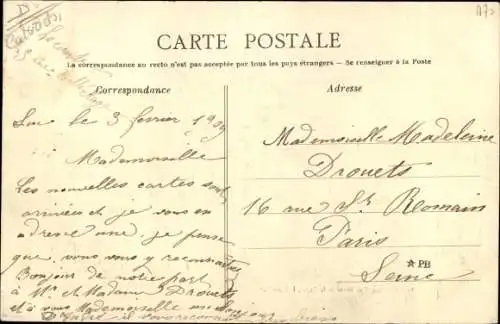 D
Calvados
A73
CARTE POSTALE
La correspondance au recto n'est pas acceptée par tous les pays étrangers — Se renseigner à la Poste
Correspondance
Adresse
Luc le 3 février 1909
Mademoiselle
Les nouvelles cartes sont
arrivées et je vous en
adresse une, je pense
que, vous vous y reconnaîtrez
Bonjour de notre part
à Mr et Madame Drouets
et à vous Mademoiselle un bonjour
Mademoiselle Madeleine
Drouets
16 rue St Romain
Paris
Seine
☆PB